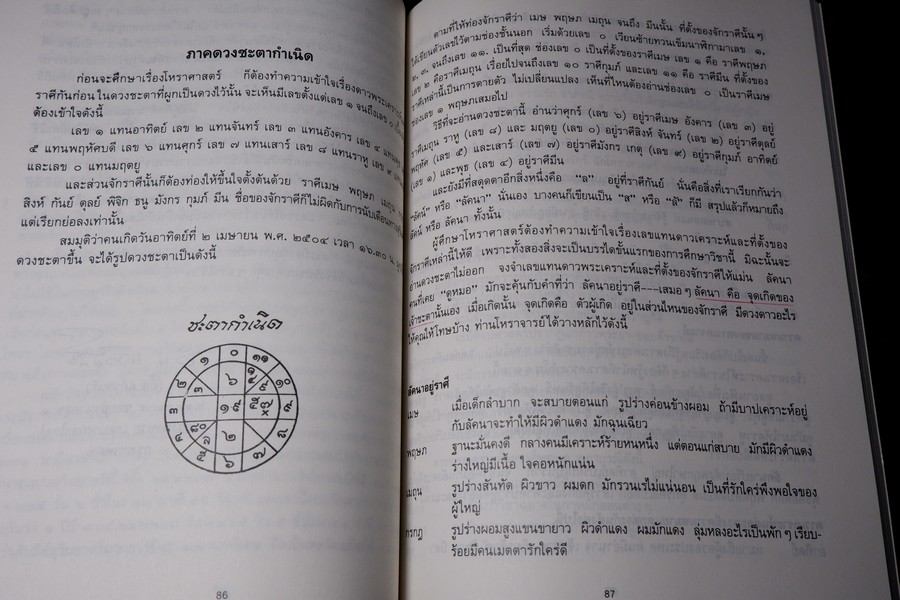 ภาคดวงชะตากำเนิด
ก่อนจะศึกษาเรื่องโหราศาสตร์ ก็ต้องทำความเข้าใจเรื่องดาวพระเคราะห์
ราศีกันก่อน ในดวงชะตาที่ผูกเป็นดวงไว้นั้น จะเห็นมีเลขตั้งแต่เลข ๑ จนถึงเลข ๐
ต้องเข้าใจดังนี้
เลข ๑ แทนอาทิตย์ เลข ๒ แทนจันทร์ เลข ๓ แทนอังคาร เลข ๔
๕ แทนพฤหัศบดี เลข ๖ แทนศุกร์ เลข ๗ แทนเสาร์ เลข ๘ แทนราหู เลข ๙
และเลข ๐ แทนมฤตยู
และส่วนจักราศีนั้นก็ต้องท่องให้ขึ้นใจตั้งต้นด้วย ราศีเมษ พฤษภ เมถุน
สิงห์ กันย์ ตุลย์ พิจิก ธนู มังกร กุมภ์ มีน ชื่อของจักราศีก็ไม่ผิดกับการนับเดือนทาง
แต่เรียกย่อลงเท่านั้น
สมมุติว่าคนเกิดวันอาทิตย์ที่ ๒ เมษายน พ.ศ. ๒๕๐๔ เวลา ๑๖.๓๐ น.
ดวงชะตาขึ้น จะได้รูปดวงชะตาเป็นดังนี้
ชะตากำเนิด
86
ตามที่ให้ท่องจักราศีว่า เมษ พฤษภ เมถุน จนถึง มีนนั้น ที่ตั้งของจักราศีนั้น ๆ
ได้เขียนตัวเลขไว้ตามช่องชั้นนอก เริ่มด้วยเลข ๐ เวียนซ้ายทวนเข็มนาฬิกามาเลข ๑,
๒, ๓, จนถึงเลข ๑๑. เป็นที่สุด ช่องเลข ๐ เป็นที่ตั้งของราศีเมษ เลข ๑ คือ ราศีพฤษภ
เลข ๒ คือราศีเมถุน เรื่อยไปจนถึงเลข ๑๐ ราศีกุมภ์ และเลข ๑๑ คือ ราศีมีน ที่ตั้งของ
ราศีเหล่านี้เป็นการตายตัว ไม่เปลี่ยนแปลง เห็นที่ไหนต้องอ่านช่องเลข ๐ เป็นราศีเมษ
ช่องเลข ๑ พฤษภเสมอไป
วิธีที่จะอ่านดวงชะตานี้ อ่านว่าศุกร์ (เลข ๖) อยู่ราศีเมษ อังคาร (เลข ๓) อยู่
ราศีเมถุน ราหู (เลข ๘) และ มฤตยู (เลข ๐) อยู่ราศีสิงห์ จันทร์ (เลข ๒) อยู่ราศีตุลย์
พฤหัศ (เลข ๕) และเสาร์ (เลข ๗) อยู่ราศีมังกร เกตุ (เลข ๙) อยู่ราศีกุมภ์ อาทิตย์
(เลข ๑) และพุธ (เลข ๔) อยู่ราศีมีน
และยังมีที่สดุดตาอีกสิ่งหนึ่งคือ “ล” อยู่ที่ราศีกันย์ นั่นคือสิ่งที่เราเรียกกันว่า
“ลัคน์” หรือ “ลัคนา” นั่นเอง บางคนก็เขียนเป็น “ส” หรือ “ลั” ก็มี สรุปแล้วก็หมายถึง
ลัคน์ หรือ ลัคนา ทั้งนั้น
ผู้ศึกษาโหราศาสตร์ต้องทำความเข้าใจเรื่องเลขแทนดาวเคราะห์และที่ตั้งของ
จักราศีเหล่านี้ให้ดี เพราะทั้งสองสิ่งจะเป็นบรรไดขั้นแรกของการศึกษาวิชานี้ มิฉะนั้นจะ
อ่านดวงชะตาไม่ออก จงจำเลขแทนดาวพระเคราะห์และที่ตั้งของจักราศีให้แม่น ลัคนา
คนที่เคย “ดูหมอ” มักจะคุ้นกับคำที่ว่า ลัคนาอยู่ราศี---เสมอ ๆ ลัคนา คือ จุดเกิดของ
เจ้าชะตานั้นเอง เมื่อเกิดนั้น จุดเกิดคือ ตัวผู้เกิด อยู่ในส่วนไหนของจักราศี มีดวงดาวอะไร
ให้คุณให้โทษบ้าง ท่านโหราจารย์ได้วางหลักไว้ดังนี้
ลัคนาอยู่ราศี
เมษ เมื่อเด็กลำบาก จะสบายตอนแก่ รูปร่างค่อนข้างผอม ถ้ามีบาปเคราะห์อยู่
กับลัคนาจะทำให้มีผิวดำแดง มักฉุนเฉียว
พฤษภ ฐานะมั่นคงดี กลางคนมีเคราะห์ร้ายหนหนึ่ง แต่ตอนแก่สบาย มักมีผิวดำแดง
ร่างใหญ่มีเนื้อ ใจคอหนักแน่น
เมถุน รูปร่างสันทัด ผิวขาว ผมดก มักรวนเรไม่แน่นอน เป็นที่รักใคร่พึงพอใจของ
ผู้ใหญ่
กรกฎ รูปร่างผอมสูงแขนขายาว ผิวดำแดง ผมมักแดง ลุ่มหลงอะไรเป็นพัก ๆ เรียบ-
ร้อยมีคนเมตตารักใคร่ดี
87